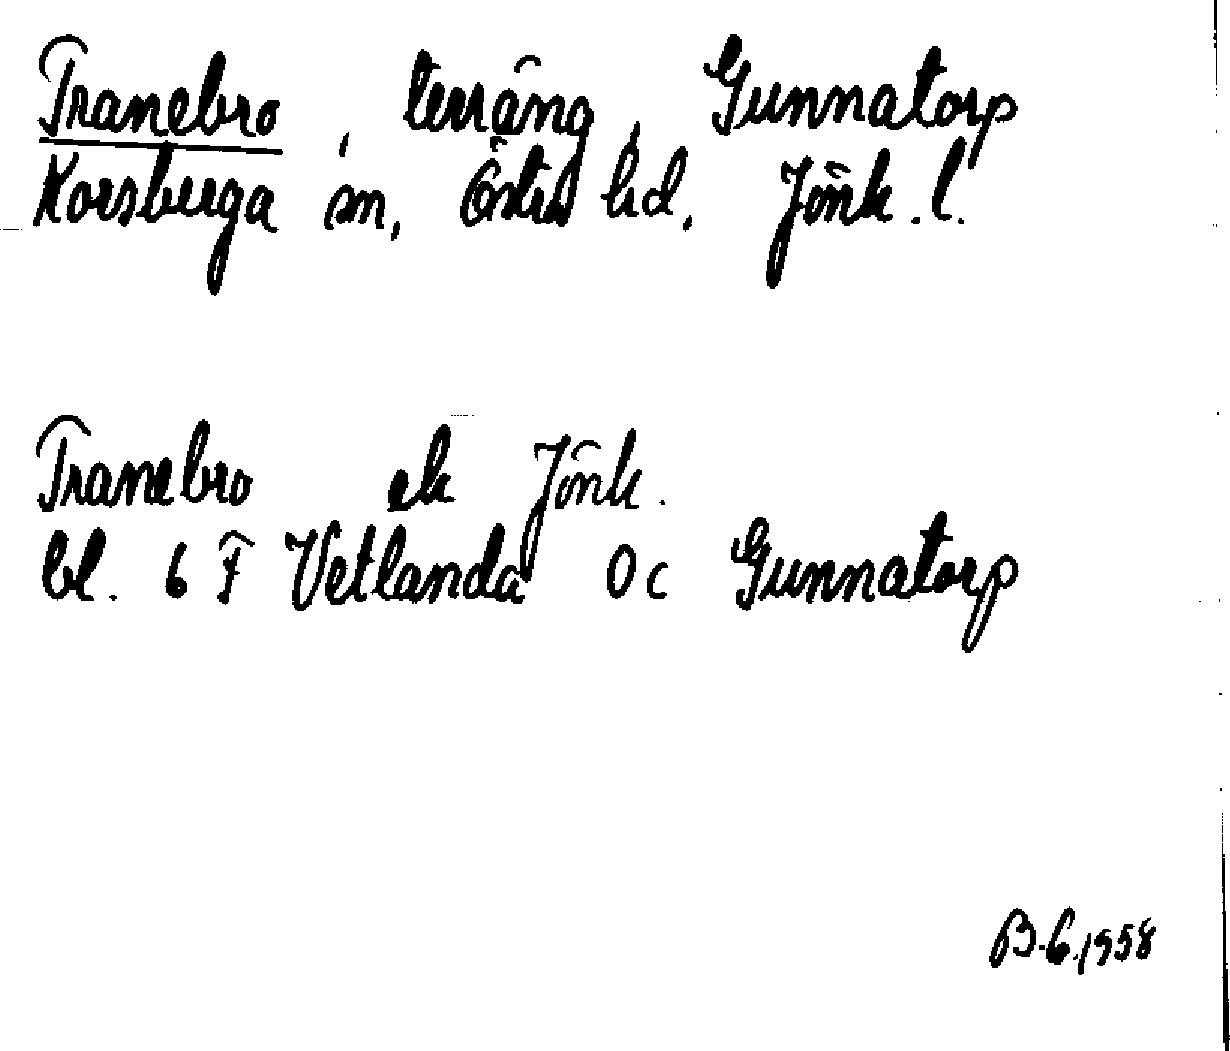 Tranebro, terräng, Gunnatorp
Korsberga sn, Östra hd, Jönk. l.
Tranebro ek Jönk.
bl. 6 F Vetlanda 0 c Gunnatorp
B.G. 1958